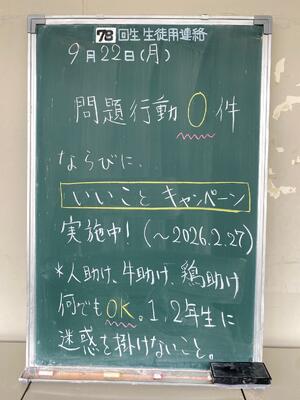 78回生 生徒用連絡
9月22日(月)
問題行動 0 件
ならびに、
いいこと キャンペーン
実施中! (〜2026.2.27)
*人助け、牛助け、鶏助け
何でもOK。1,2年生に
迷惑を掛けないこと。